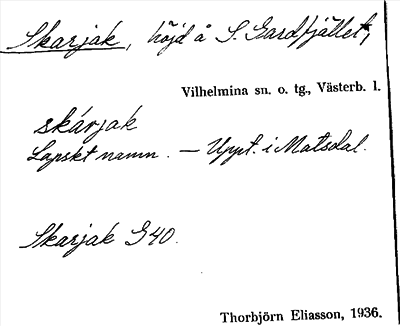 Skarjak, höjd å S. Gardfjället,
Vilhelmina sn. o. tg., Västerb. l.
skárjak
Lapskt namn. – Uppt. i Matsdal.
Skarjak G40.
Thorbjörn Eliasson, 1936.